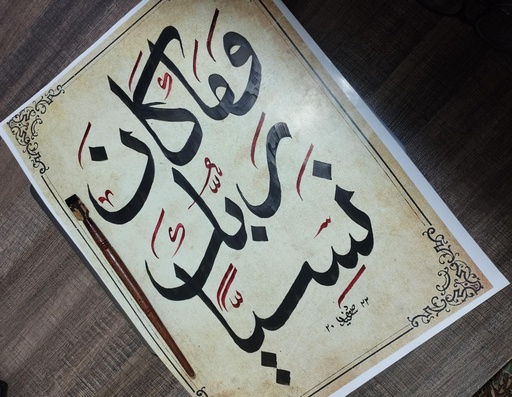 وَمَا كَانَ
رَبُّكَ
نَسِيًّا
٢٠ ٢٣